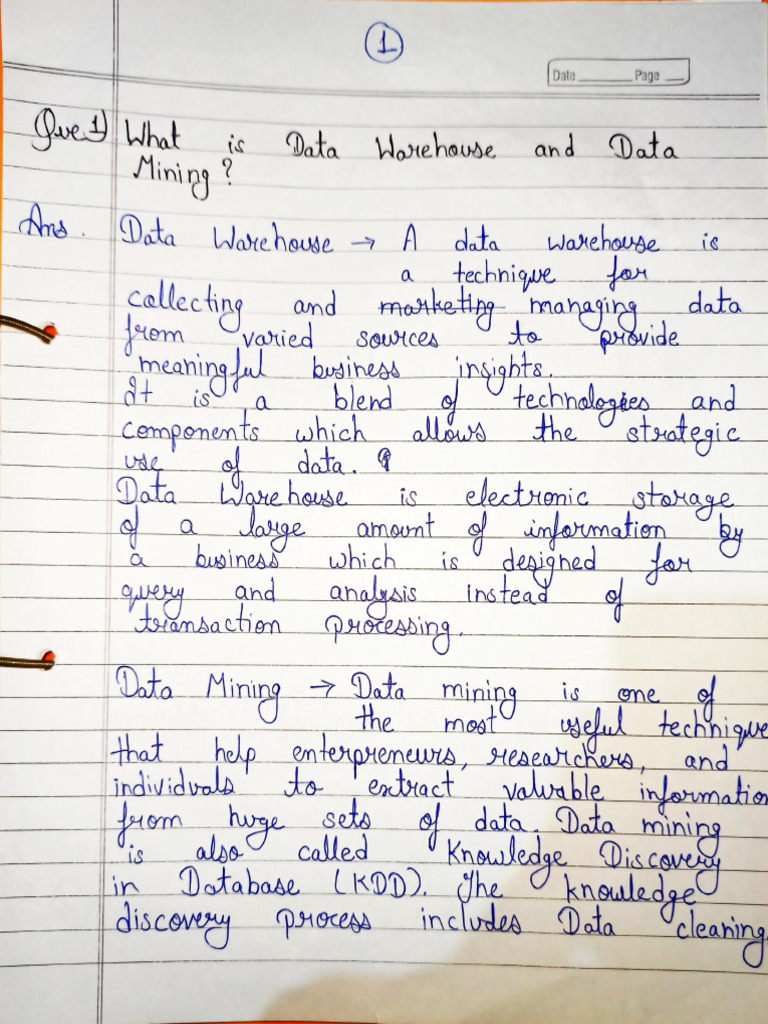 1
Date ______ Page ___
Que 1) What is Data Warehouse and Data
Mining?
Ans. Data Warehouse → A data warehouse is
a technique for
collecting and marketing managing data
from varied sources to provide
meaningful business insights.
It is a blend of technologies and
components which allows the strategic
use of data.
Data Warehouse is electronic storage
of a large amount of information by
a business which is designed for
query and analysis instead of
transaction processing.
Data Mining → Data mining is one of
the most useful technique
that help enterpreneurs, researchers, and
individuals to extract valuable information
from huge sets of data. Data mining
is also called Knowledge Discovery
in Database (KDD). The knowledge
discovery process includes Data cleaning,